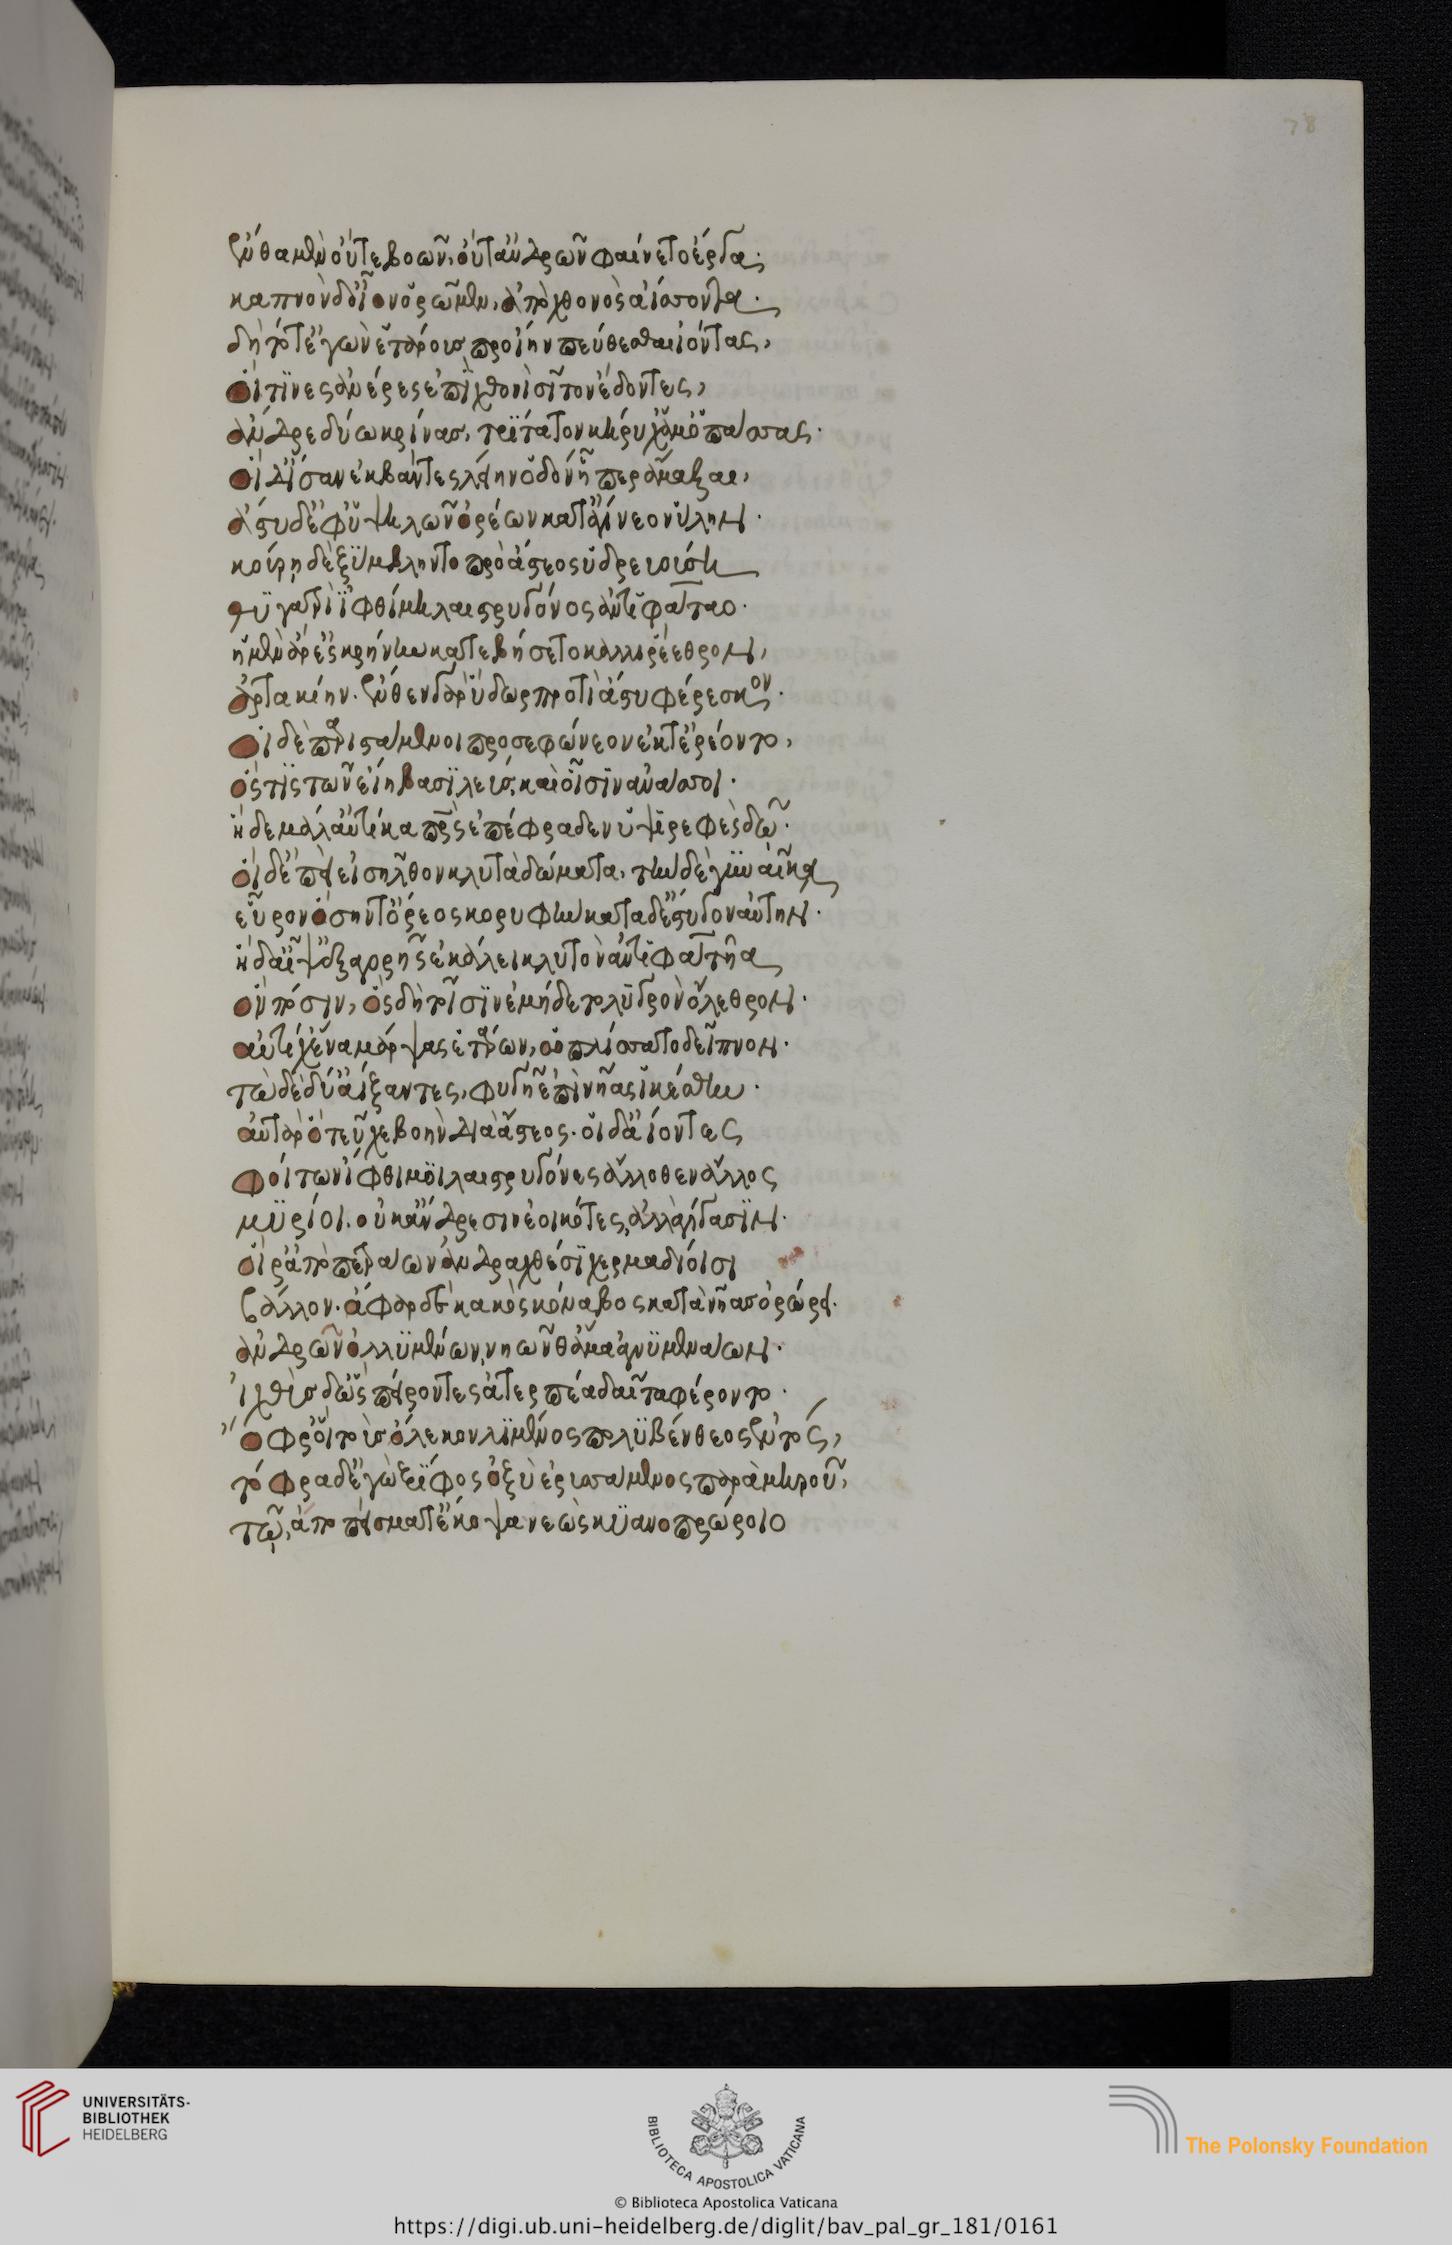 78
ἔνθα μὲν οὔτε βοῶν, οὔτ' ἀνδρῶν φαίνετο ἔργα·
καπνὸν δ' οἶον ὁρῶμεν, ἀπὸ χθονὸς ἀΐσσοντα·
δὴ τότ' ἐγὼν ἑτάρους προΐην πεύθεσθαι ἰόντας,
οἵ τινες ἀνέρες εἶεν ἐπὶ χθονὶ σῖτον ἔδοντες,
ἄνδρε δύω κρίνας, τρίτατον κήρυχ' ἅμ' ὀπάσσας·
οἱ δ' ἴσαν ἐκβάντες λείην ὁδὸν ᾗπερ ἄμαξαι,
ἄστυ δ' ἐφ' ὑψηλῶν ὀρέων καταγίνεον ὕλην·
κούρῃ δὲ ξύμβληντο πρὸ ἄστεος ὑδρευούσῃ
θυγατρὶ ἰφθίμῃ λαιστρυγόνος ἀντιφάταο·
ἡ μὲν ἄρ' ἐς κρήνην κατεβήσετο καλλιρέεθρον,
ἀρτακίην· ἔνθεν γὰρ ὕδωρ προτὶ ἄστυ φέρεσκον·
οἱ δὲ παριστάμενοι προσεφώνεον ἔκ τ' ἐρέοντο,
ὅς τις τῶν εἴη βασιλεὺς, καὶ οἷσιν ἀνάσσοι·
ἡ δὲ μάλ' αὐτίκα πατρὸς ἐπέφραδεν ὑψιρεφὲς δῶ·
οἱ δ' ἐπεὶ εἰσῆλθον κλυτὰ δώματα, τὴν δὲ γυναῖκα
εὗρον ὅσην τ' ὄρεος κορυφὴν κατὰ δ' ἔστυγον αὐτήν·
ἡ δ' αἶψ' ἐξ ἀγορῆς ἐκάλει κλυτὸν ἀντιφατῆα
ὃν πόσιν, ὃς δὴ τοῖσιν ἐμήδετο λυγρὸν ὄλεθρον·
αὐτίχ' ἕνα μάρψας ἑτάρων, ὁπλίσσατο δεῖπνον·
τὼ δὲ δύ' ἀΐξαντες, φυγῇ ἐπὶ νῆας ἱκέσθην·
αὐτὰρ ὁ τεῦχε βοὴν διὰ ἄστεος· οἱ δ' ἀΐοντες
φοίτων ἴφθιμοι λαιστρυγόνες ἄλλοθεν ἄλλος
μυρίοι. οὐκ ἄνδρεσιν ἐοικότες, ἀλλὰ γίγασιν·
οἵ ῥ' ἀπὸ πετράων ἀνδραχθέσι χερμαδίοισι
βάλλον· ἄφαρ δὲ κακὸς κόναβος κατὰ νῆας ὀρώρει·
ἀνδρῶν ὀλλυμένων, νηῶν θ' ἅμα ἀγνυμενάων·
ἰχθῦς δ' ὣς πείροντες ἀτερπέα δαῖτα φέροντο·
ὄφρ' οἱ τοὺς ὄλεκον λιμένος πολυβένθεος ἐντός,
τόφρα δ' ἐγὼ ξίφος ὀξὺ ἐρυσσάμενος παρὰ μηροῦ,
τῷ, ἀπὸ πείσματ' ἔκοψα νεὼς κυανοπρώροιο
UNIVERSITÄTS-
BIBLIOTHEK
HEIDELBERG
BIBLIOTECA APOSTOLICA VATICANA
The Polonsky Foundation
© Biblioteca Apostolica Vaticana
https://digi.ub.uni-heidelberg.de/diglit/bav_pal_gr_181/0161